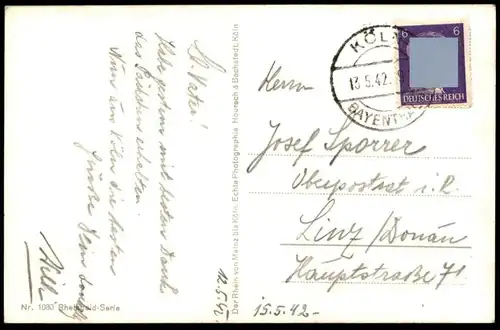 Lb. Vater!
Habe gestern mit bestem Dank
das Päckchen erhalten.
Nun aus Köln die besten
Grüße Dein
Willi
12.5.42
Nr. 1080 Rheingold-Serie
Der Rhein von Mainz bis Köln. Echte Photographie Hoursch & Bechstedt, Köln
KÖLN
13.5.42.
BAYENTHAL
6 6
DEUTSCHES REICH
Herrn
Josef Sporrer
Oberpostrat i. R.
Linz/Donau
Hauptstraße 71
15.5.42-